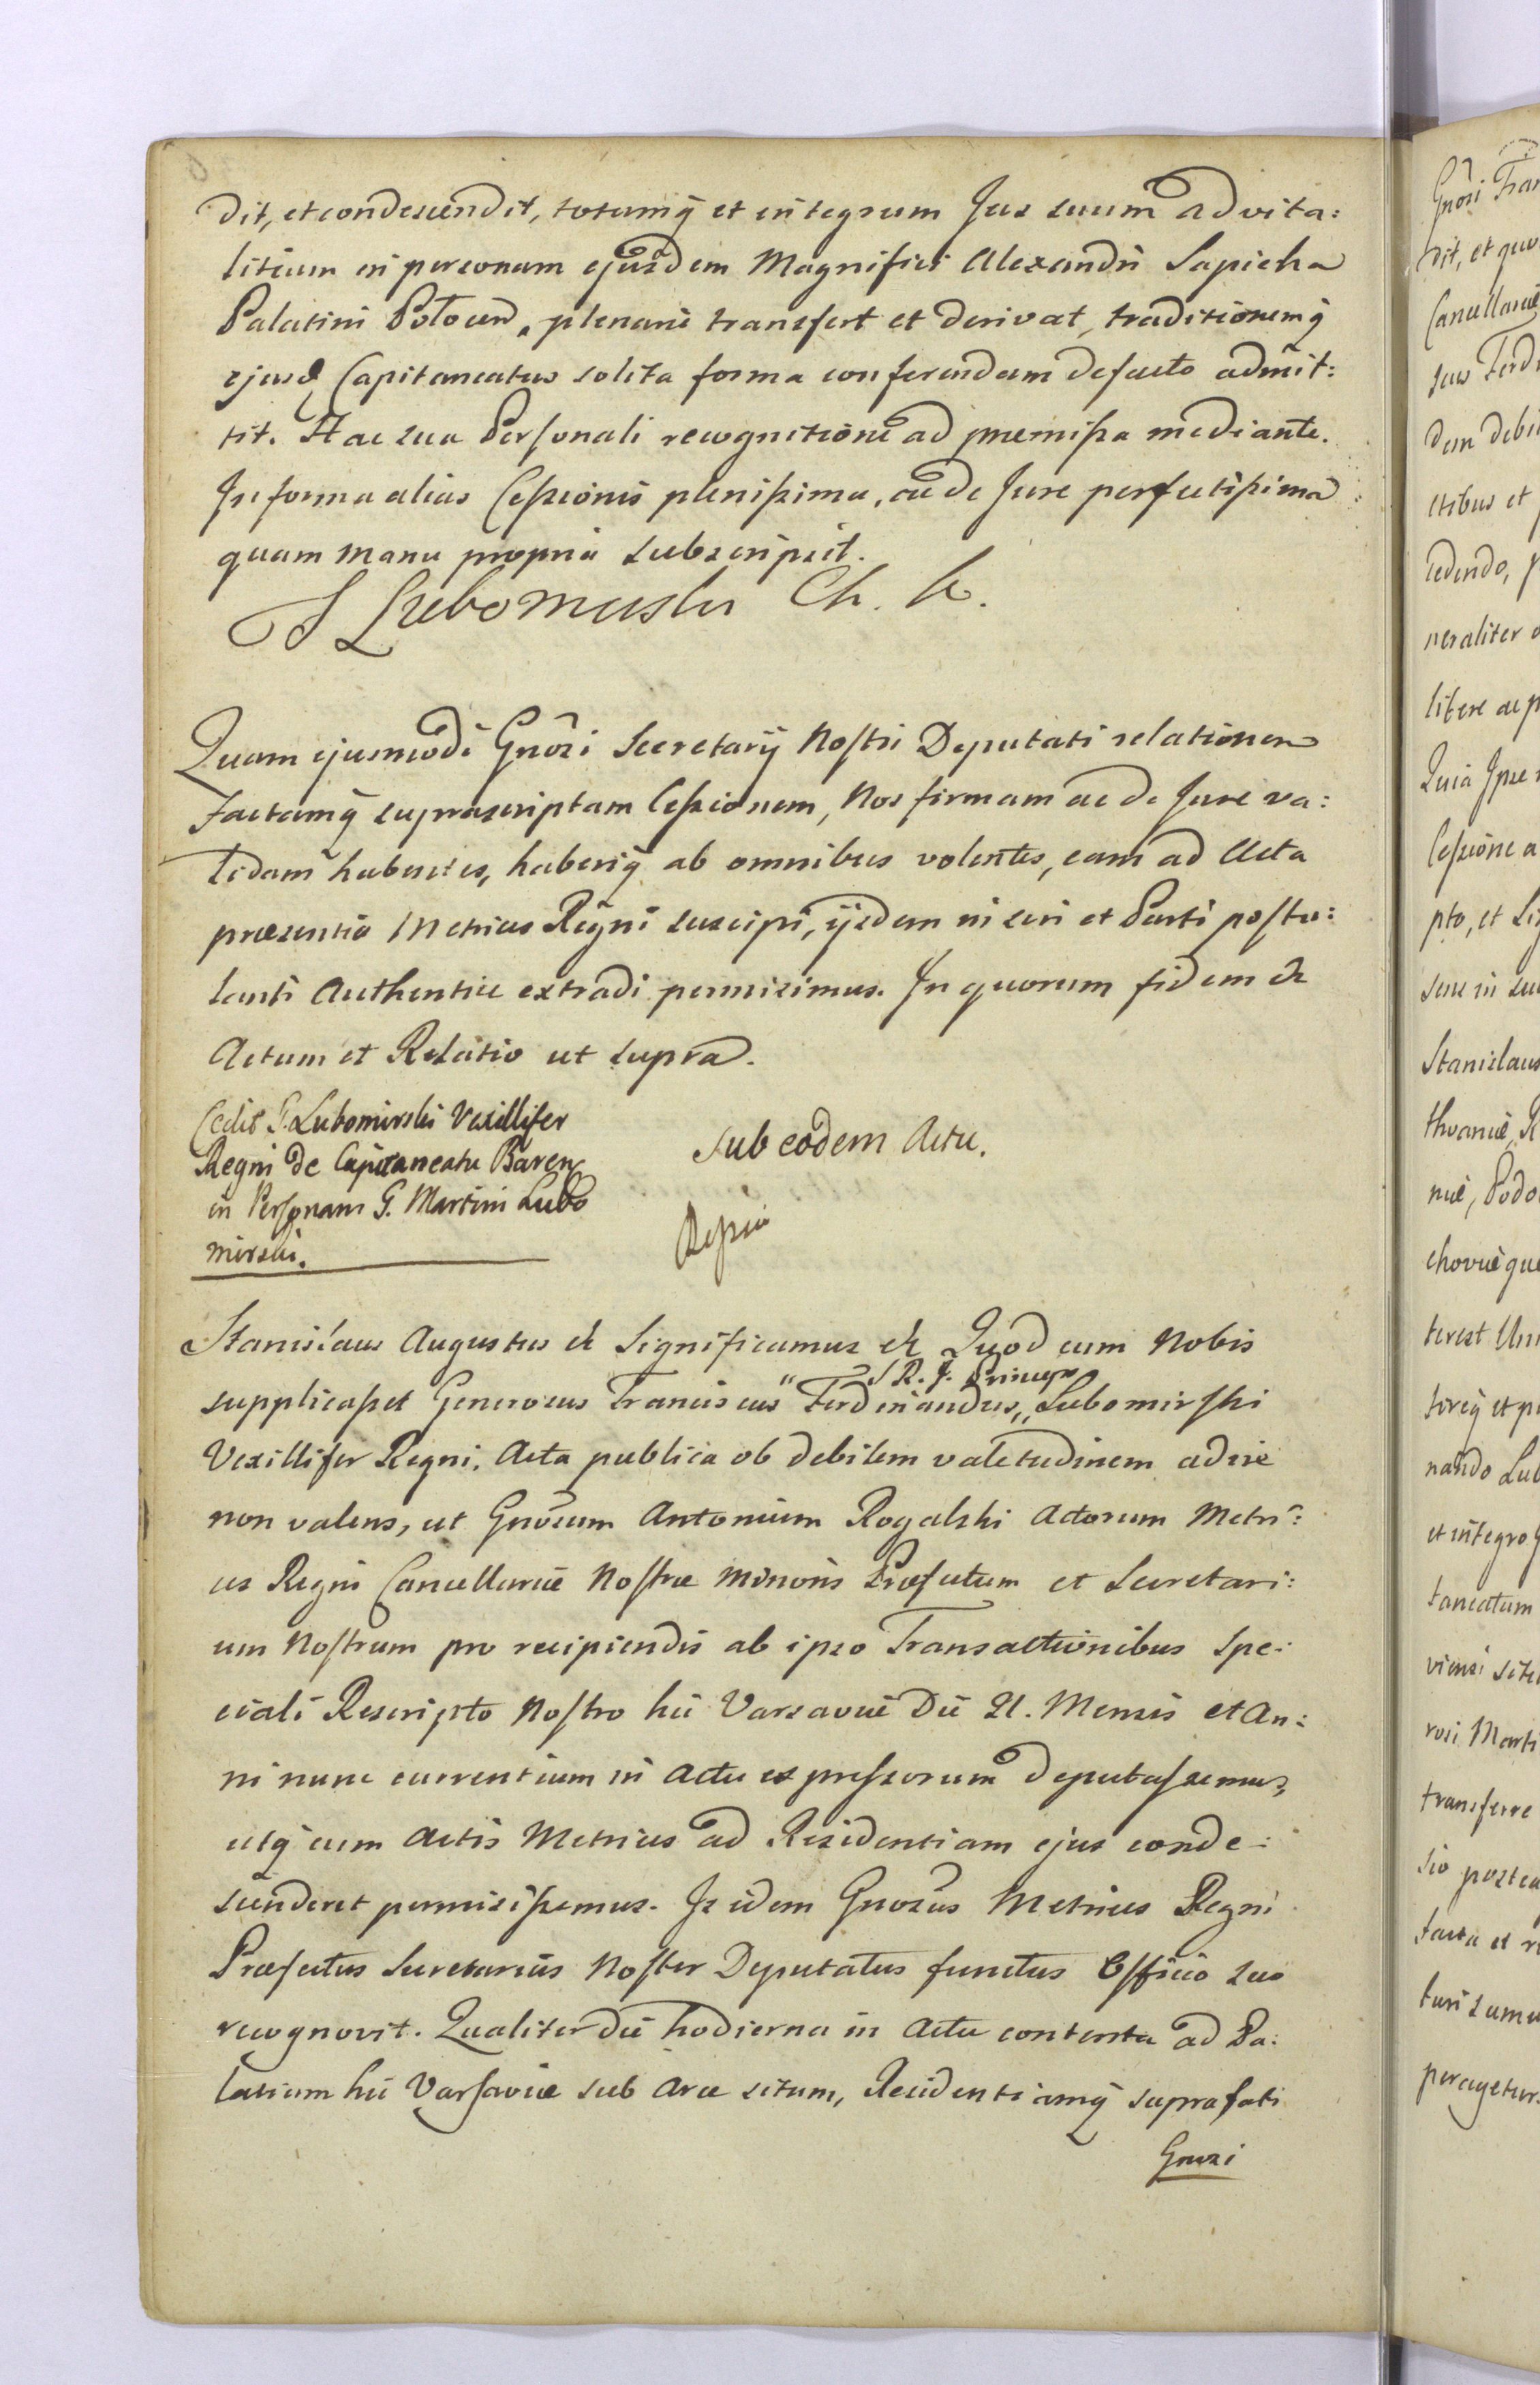 dit, et condescendit, totumq̃ et integrum Jus suum advita:
litium in personam ejusdem Magnifici Alexandri Sapieha
Palatini Polocen, plenarie transfert et derivat, traditionemq̃
ejusd Capitaneatus solita forma conferendam defacto admit:
tit. Hac sua Personali recognitione ad præmissa mediante.
In forma alias Cessionis plenissima, ac de Jure perfectissima
quam manu propria subscripsit.
S Lubomirski Ch. K.
Quam ejusmodi Gnõsi Secretarij Nostri Deputati relationem
Factamq̃ suprascriptam Cessionem, Nos firmam ac de Jure va:
lidam habentes, haberiq̃ ab omnibus volentes, eam ad Acta
præsentia Metrices Regni suscipi, ijsdem inseri et Parti postu:
lanti Authentice extradi permisimus. In quorum fidem &
Actum et Relatio ut supra.
Cedit G. Lubomirski Vexillifer
Regni de Capitaneatu Baren
in Personam G. Martini Lubo
mirski.
Sub eodem Actu.
Stanislaus Augustus & Significamus & Quod cum Nobis
S R. J. Princeps
supplicasset Generosus Franciscus " Ferdinandus,, Lubomirski
Vexillifer Regni, Acta publica ob debilem valetudinem adire
non valens, ut Gnõsum Antonium Rogalski Actorum Metri:
ces Regni Cancellariæ Nostræ Minoris Præfectum et Secretari:
um Nostrum pro recipiendis ab ipso Transactionibus Spe:
ciali Rescripto Nostro hic Varsaviæ Die 21. Mensis et An:
ni nunc currentium in Actu expressorum deputassemus,
utq̃ cum Actis Metrices ad Residentiam ejus conde:
scenderet permisissemus. Is idem Gnosus Metrices Regni
Præfectus Secretarius Noster Deputatus functus Officio suo
recognovit. Qualiter die hodierna in Actu contenta ad Pa:
latium hic Varsaviæ sub Arce situm, Residentiamq̃ suprafati
Gnosi